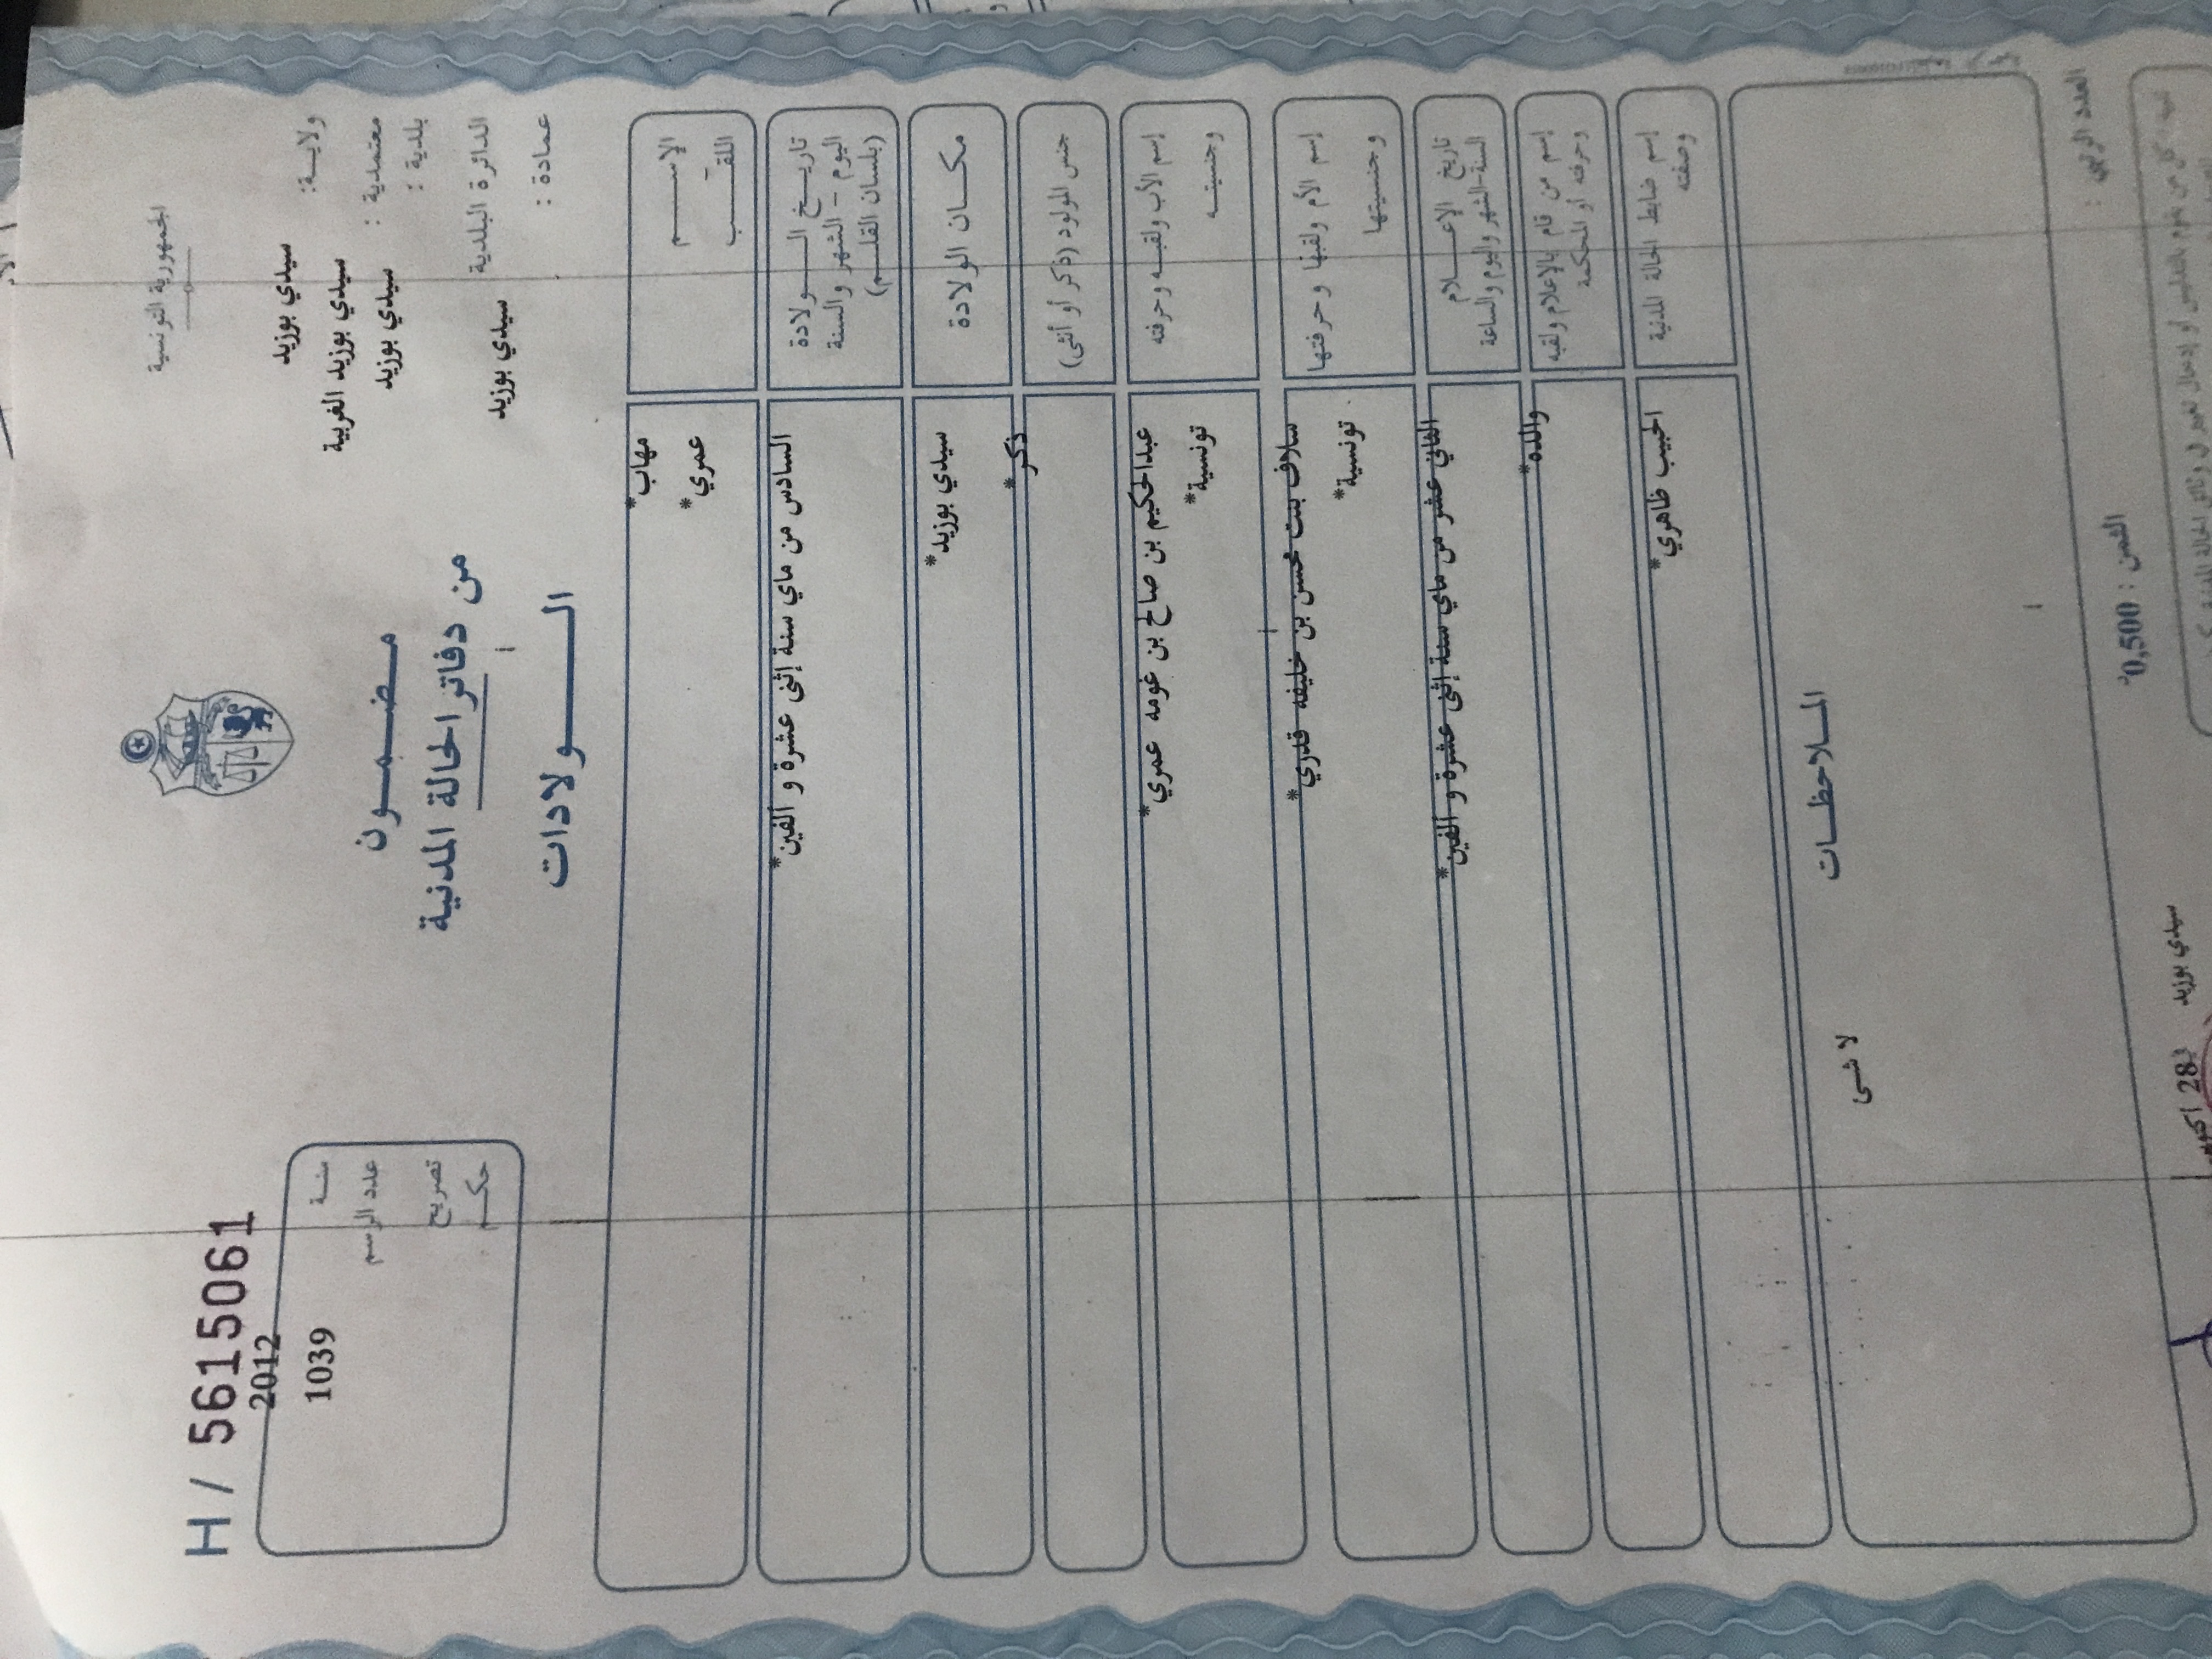 الجمهورية التونسية
H / 5615061
ولايـــة: سيدي بوزيد
معتمدية : سيدي بوزيد الغربية
بلدية : سيدي بوزيد
الدائرة البلدية سيدي بوزيد
عمادة :
مضمــــون
من دفاتر الحالة المدنية
الــــولادات
سنــة 2012
عدد الرسم 1039
تصريح
حكــم
الإســــم مهاب*
اللقــــب عمري*
تاريــخ الــــولادة
اليوم - الشهر والسنة
(بلسان القلــم)
السادس من ماي سنة إثنى عشرة و ألفين*
مكــان الولادة سيدي بوزيد*
جنس المولود (ذكر أو أنثى) ذكر*
إسم الأب ولقبــه وحرفته عبدالحكيم بن صالح بن غومه عمري*
وجنسيتــه تونسية*
إسم الأم ولقبها وحرفتها سلاف بنت محسن بن خليفه قدري*
وجنسيتها تونسية*
تاريخ الإعــــلام
السنة-الشهر واليوم والساعة
الثاني عشر من ماي سنة إثنى عشرة و ألفين*
إسم من قام بالإعلام ولقبه
وحرفته أو المحكمة
والده*
إسم ضابط الحالة المدنية
وصفته
الحبيب ظاهري*
المــلاحظــات
لا شى
العدد الرتبي :
الثمن : 0,500د
سيدي بوزيد 28 اكتوبر